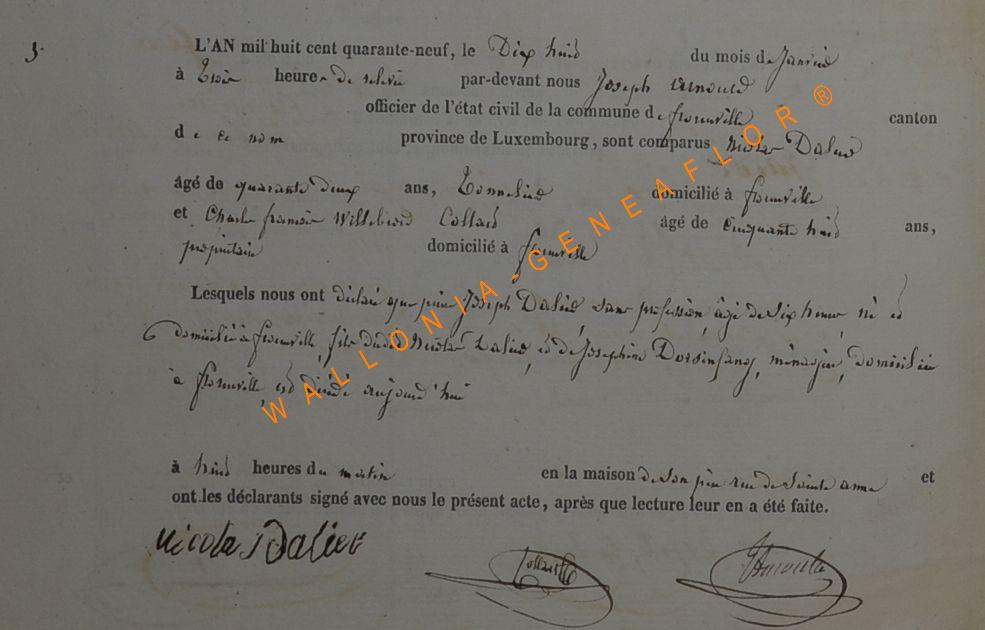 3.
L'AN mil huit cent quarante-neuf, le Dix huit du mois de Janvier
à trois heures de relevée par-devant nous Joseph Arnould
officier de l'état civil de la commune de florenville canton
de ce nom province de Luxembourg, sont comparus Nicolas Dalier
âgé de quarante deux ans, Tonnelier domicilié à florenville
et Charles françois Willebrord Collard âgé de cinquante huit ans,
propriétaire domicilié à florenville
Lesquels nous ont déclaré que pierre Joseph Dalier, sans profession, âgé de six heures, né et
domicilié à florenville, fils dudit Nicolas Dalier, et de Josephine Dorsinfang, ménagère, domiciliée
à florenville, est décédé aujourd'hui
à huit heures du matin en la maison de son père rue de Sainte anne et
ont les déclarants signé avec nous le présent acte, après que lecture leur en a été faite.
Nicolas Dalier Collard JArnould
WALLONIA-GENEAFLOR ®